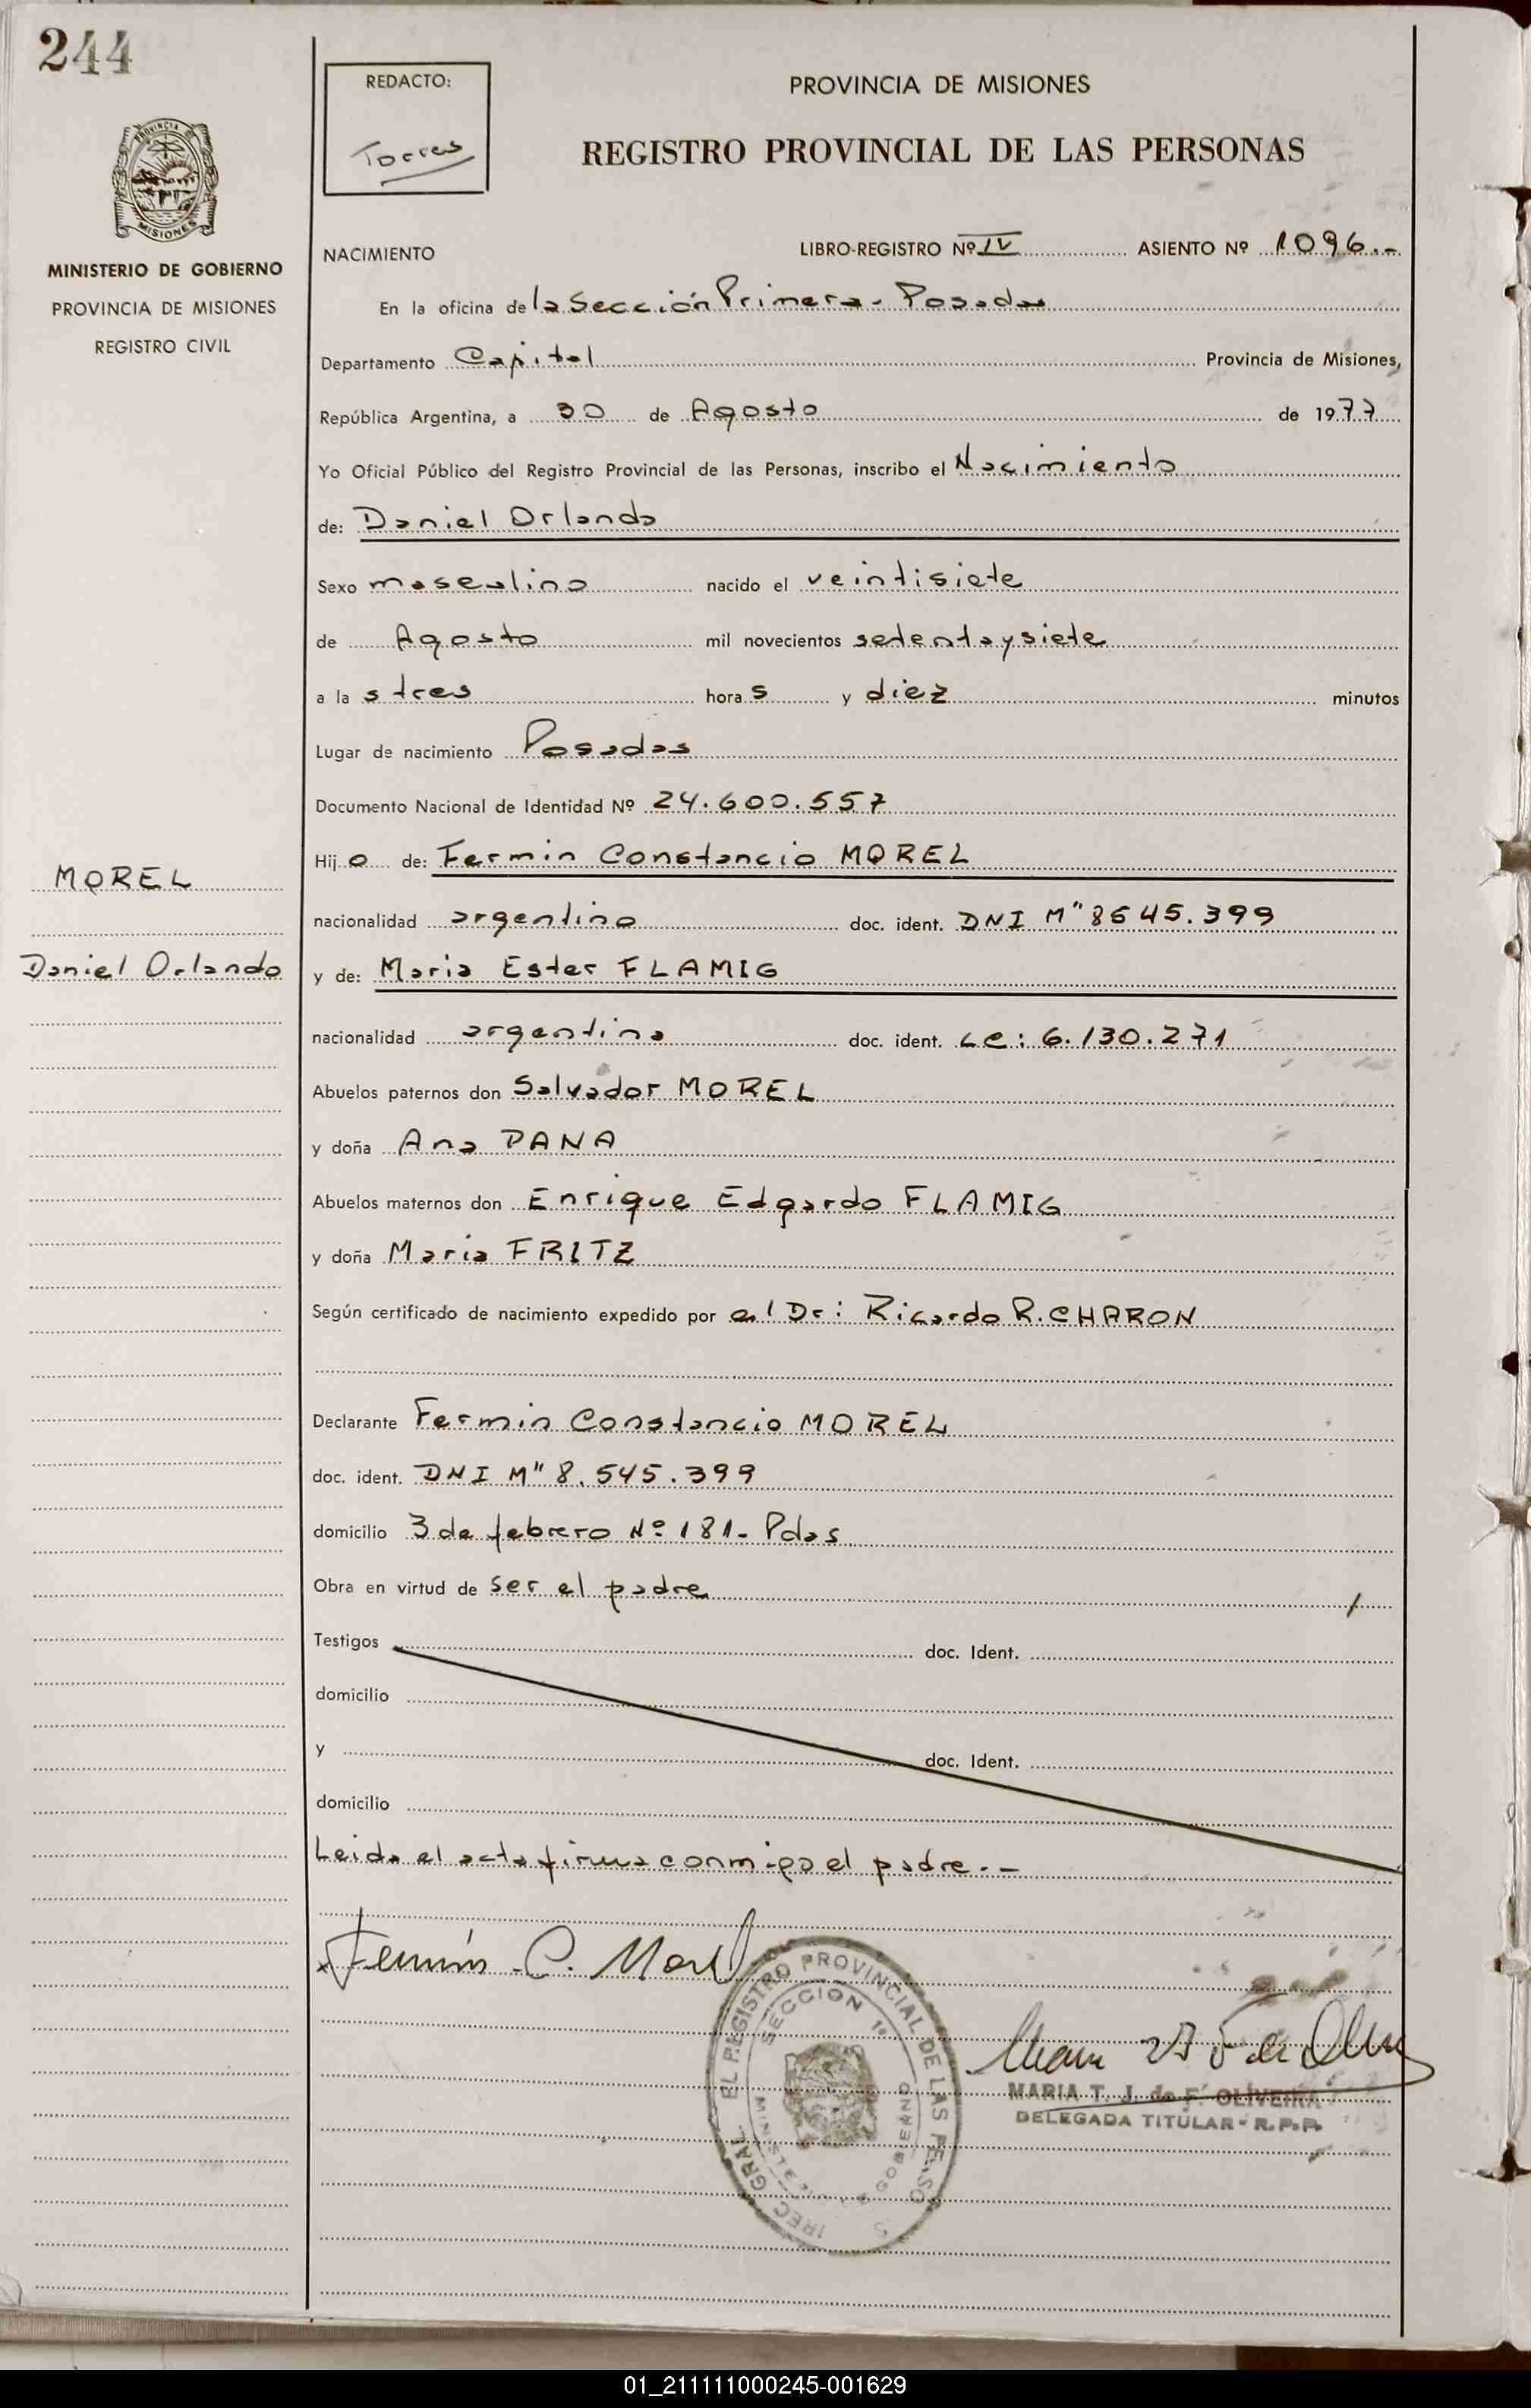 244
REDACTO:
Torres
PROVINCIA DE MISIONES
REGISTRO PROVINCIAL DE LAS PERSONAS
PROVINCIA DE
MISIONES
MINISTERIO DE GOBIERNO
PROVINCIA DE MISIONES
REGISTRO CIVIL
NACIMIENTO LIBRO-REGISTRO Nº IV ASIENTO Nº 1096.-
En la oficina de la Sección Primera - Posadas
Departamento Capital Provincia de Misiones,
República Argentina, a 30 de Agosto de 1977
Yo Oficial Público del Registro Provincial de las Personas, inscribo el Nacimiento
de: Daniel Orlando
Sexo masculino nacido el veintisiete
de Agosto mil novecientos setenta y siete
a la s tres hora s y diez minutos
Lugar de nacimiento Posadas
Documento Nacional de Identidad Nº 24.600.557
Hij o de: Fermin Constancio MOREL
MOREL
nacionalidad argentino doc. ident. DNI M" 8545.399
Daniel Orlando
y de: Maria Ester FLAMIG
nacionalidad argentina doc. ident. LC: 6.130.271
Abuelos paternos don Salvador MOREL
y doña Ana PANA
Abuelos maternos don Enrique Edgardo FLAMIG
y doña Maria FRITZ
Según certificado de nacimiento expedido por el Dr: Ricardo R. CHARON
Declarante Fermin Constancio MOREL
doc. ident. DNI M" 8.545.399
domicilio 3 de febrero Nº 181- Pdas
Obra en virtud de ser el padre
Testigos doc. Ident.
domicilio
y doc. Ident.
domicilio
Leida el acta firma conmigo el padre.-
Fermín C. Morel
EL REGISTRO PROVINCIAL DE LAS
SECCION 1ª
GRAL.
MARIA T. J. de F. OLIVEIRA
DELEGADA TITULAR - R.P.P.
01_211111000245-001629